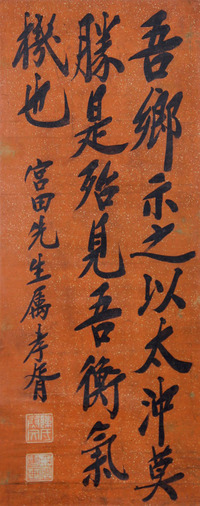 吾鄉示之以太沖莫
勝是殆見吾衡氣
機也
宮田先生属孝胥